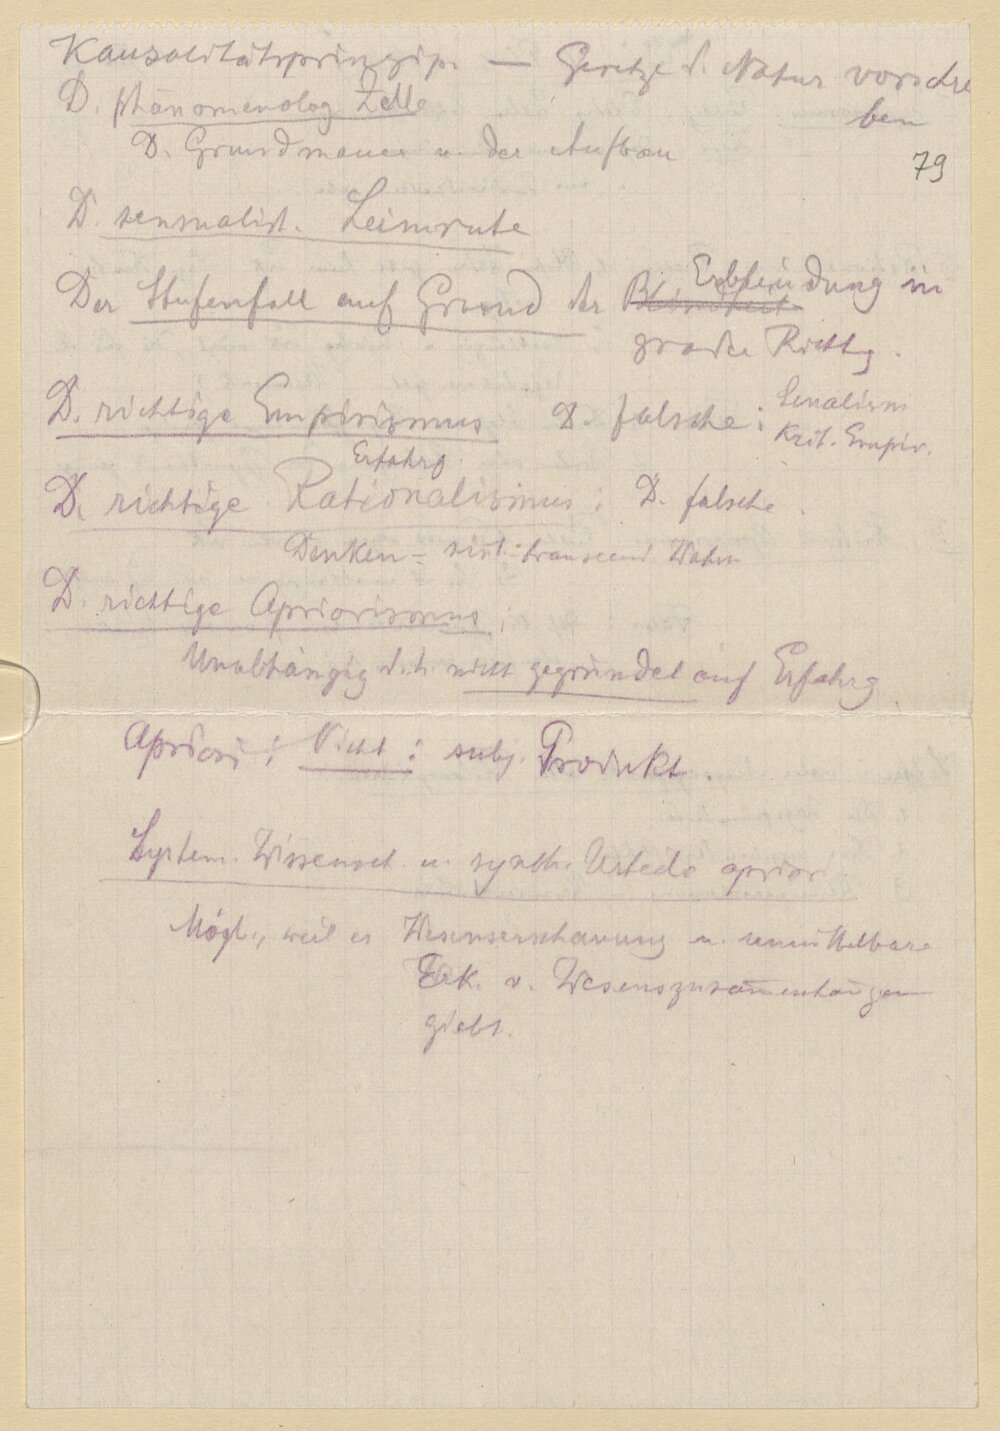 Kausalitätsprinzip. — Gesetze d. Natur vorschrei
ben
79
D. phänomenolog Zelle
D. Grundmauer u. der Aufbau
D. sensualist. Leimrute
Der Stufenfall auf Grund der Erblindung in
grader Richtg.
D. richtige Empirismus D. falsche: Sensualism
Krit. Empir.
Erfahrg
D. richtige Rationalismus: D. falsche.
Denken = sinl: transcend Wahrn
D. richtige Apriorismus;
Unabhängig d.h. nicht gegründet auf Erfahrg
Apriori: Nicht: subj. Produkt.
System. Wissensch u. synth. Urteile apriori
Mögl., weil es Wesenserschauung u. unmittelbare
Erk. v. Wesenszusammenhängen
giebt.